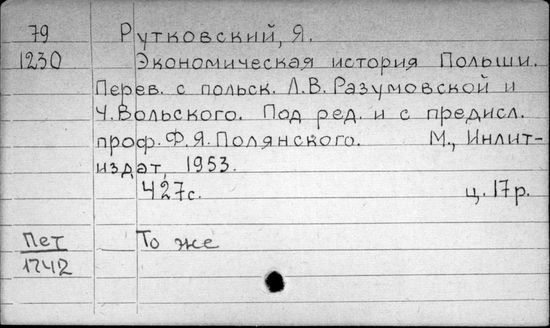 79 Рутковский, Я.
1230 Экономическая история Польши.
Перев. с польск. Л.В.Разумовской и
Ч.Вольского. Под ред. и с предисл.
проф.Ф.Я.Полянского. М., Инлит-
издат, 1953.
427с. ц.17р.
Пет То же
1742